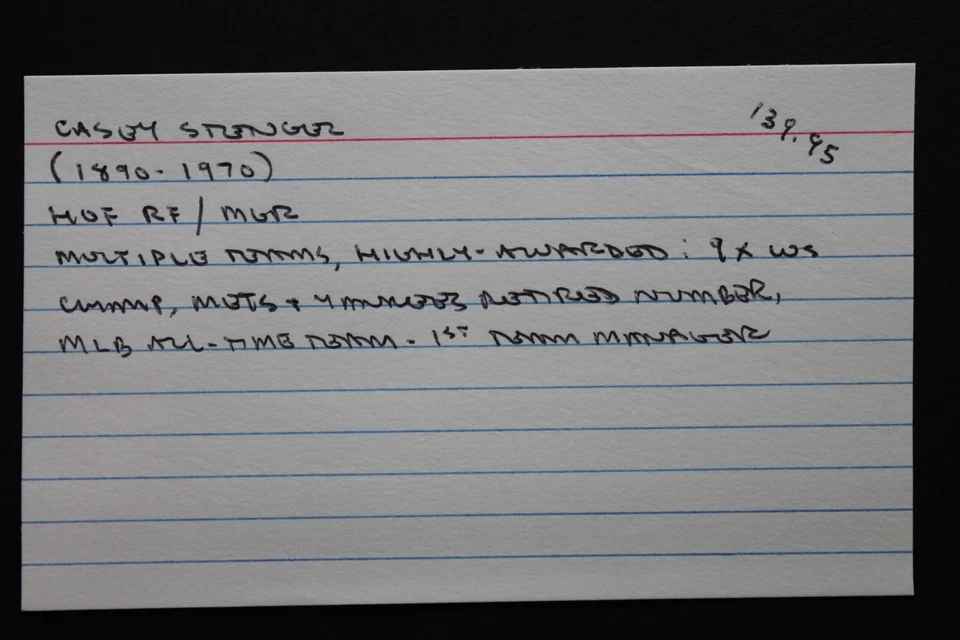 CASEY STENGEL
139.95
(1890-1970)
HOF RF / MGR
MULTIPLE TEAMS, HIGHLY-AWARDED: 9X WS
CHAMP, METS + YANKEES RETIRED NUMBER,
MLB ALL-TIME TEAM - 1ST TEAM MANAGER